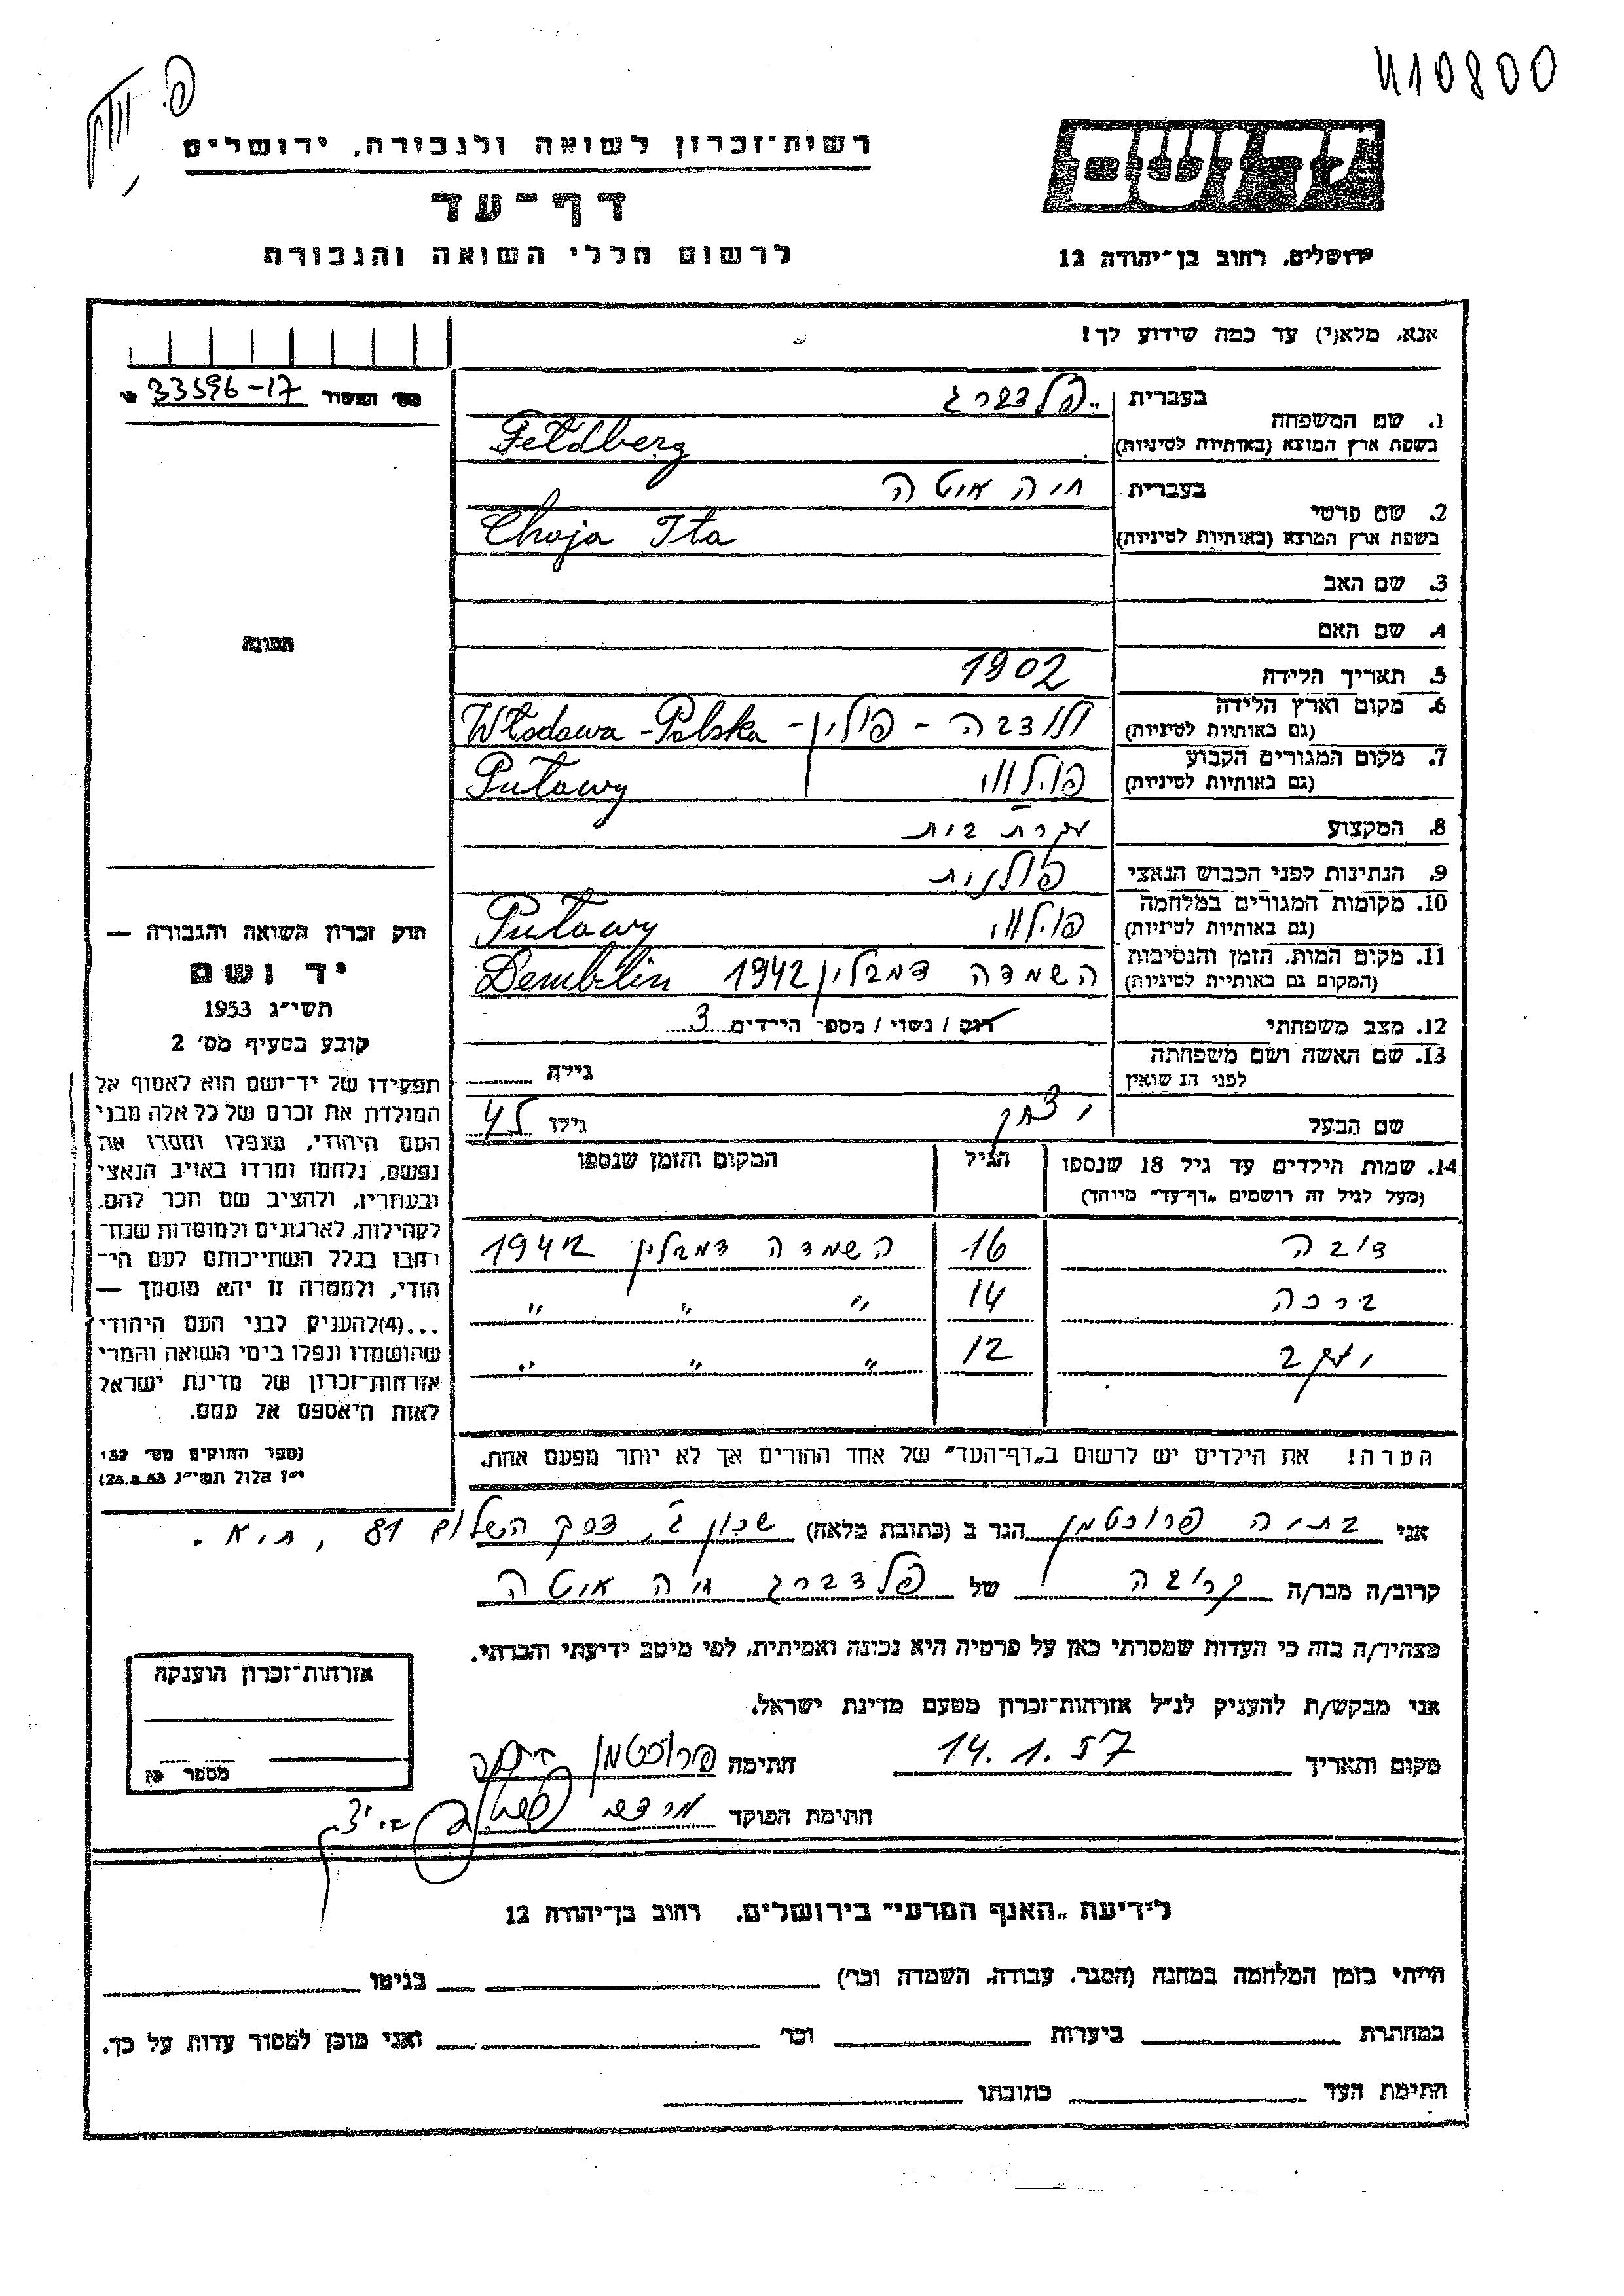 410800
רשות־זכרון לשואה ולגבורה, ירושלים
יד ושם
דף־עד
לרשום חללי השואה והגבורה
ירושלים, רחוב בן־יהודה 12
אנא, מלא(י) עד כמה שידוע לך!
מס׳ האסור 33596-17
1. שם המשפחה
בעברית פלדברג
בשפת ארץ המוצא (באותיות לטיניות) Feldberg
2. שם פרטי
בעברית חיה איטה
בשפת ארץ המוצא (באותיות לטיניות) Chaja Ita
3. שם האב
4. שם האם
5. תאריך הלידה 1902
6. מקום וארץ הלידה
(גם באותיות לטיניות) ולודבה - פולין - Włodawa - Polska
7. מקום המגורים הקבוע
(גם באותיות לטיניות) פולווי Puławy
8. המקצוע עקרת בית
9. הנתינות לפני הכבוש הנאצי פולנית
10. מקומות המגורים במלחמה
(גם באותיות לטיניות) פולווי Puławy
11. מקום המות, הזמן והנסיבות
(המקום גם באותיות לטיניות) השמדה דמבלין 1942 Dembelin
12. מצב משפחתי רווק / נשוי / מספר הילדים 3
13. שם האשה ושם משפחתה
לפני הנשואין גילה
שם הבעל יצחק גילו 45
14. שמות הילדים עד גיל 18 שנספו
(מעל לגיל זה רושמים „דף־עד" מיוחד)
הגיל המקום והזמן שנספו
דובה 16 השמדה דמבלין 1942
ברכה 14 " " "
יעקב 12 " " "
הערה! את הילדים יש לרשום ב„דף־העד" של אחד ההורים אך לא יותר מפעם אחת.
תמונה
חוק זכרון השואה והגבורה —
יד ושם
תשי״ג 1953
קובע בסעיף מס׳ 2
תפקידו של יד־ושם הוא לאסוף אל
המולדת את זכרם של כל אלה מבני
העם היהודי, שנפלו ומסרו את
נפשם, נלחמו ומרדו באויב הנאצי
ובעוזריו, ולהציב שם וזכר להם,
לקהילות, לארגונים ולמוסדות שנח־
רבו בגלל השתייכותם לעם הי־
הודי, ולמטרה זו יהא מוסמך —
...(4) להעניק לבני העם היהודי
שהושמדו ונפלו בימי השואה והמרי
אזרחות־זכרון של מדינת ישראל
לאות היאספם אל עמם.
(ספר החוקים מס׳ 132
י״ז אלול תשי״ג 28.8.53)
אני בתיה פרוכטמן הגר ב (כתובת מלאה) שכון ג׳, דרך השלום 81, ת.א.
קרוב/ה מכר/ה קרובה של פלדברג חיה איטה
מצהיר/ה בזה כי העדות שמסרתי כאן על פרטיה היא נכונה ואמיתית, לפי מיטב ידיעתי והכרתי.
אני מבקש/ת להעניק לנ״ל אזרחות־זכרון מטעם מדינת ישראל.
מקום ותאריך 14.1.57 חתימה פרוכטמן
חתימת הפוקד
אזרחות־זכרון הוענקה
מספר
לידיעת „האגף המדעי" בירושלים, רחוב בן־יהודה 12
הייתי בזמן המלחמה במחנה (הסגר, עבודה, השמדה וכו׳) בגיטו
במחתרת ביערות וכו׳ ואני מוכן למסור עדות על כך.
חתימת העד כתובתו